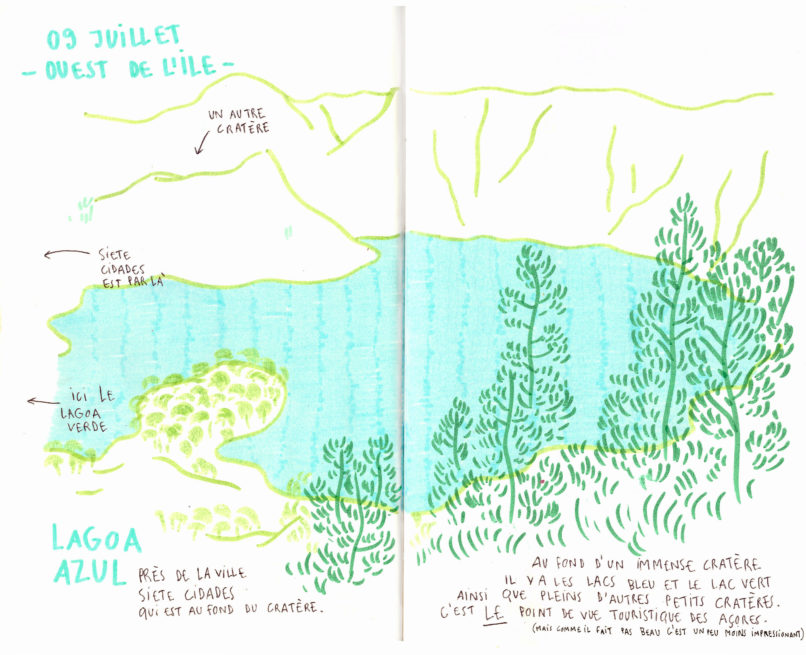 09 JUILLET
- OUEST DE L'ÎLE -
UN AUTRE
CRATÈRE
SIETE
CIDADES
EST PAR LÀ
ICI LE
LAGOA
VERDE
LAGOA
AZUL
PRÈS DE LA VILLE
SIETE CIDADES
QUI EST AU FOND DU CRATÈRE.
AU FOND D'UN IMMENSE CRATÈRE
IL Y A LES LACS BLEU ET LE LAC VERT
AINSI QUE PLEINS D'AUTRES PETITS CRATÈRES.
C'EST LE POINT DE VUE TOURISTIQUE DES AÇORES.
(MAIS COMME IL FAIT PAS BEAU C'EST UN PEU MOINS IMPRESSIONANT)